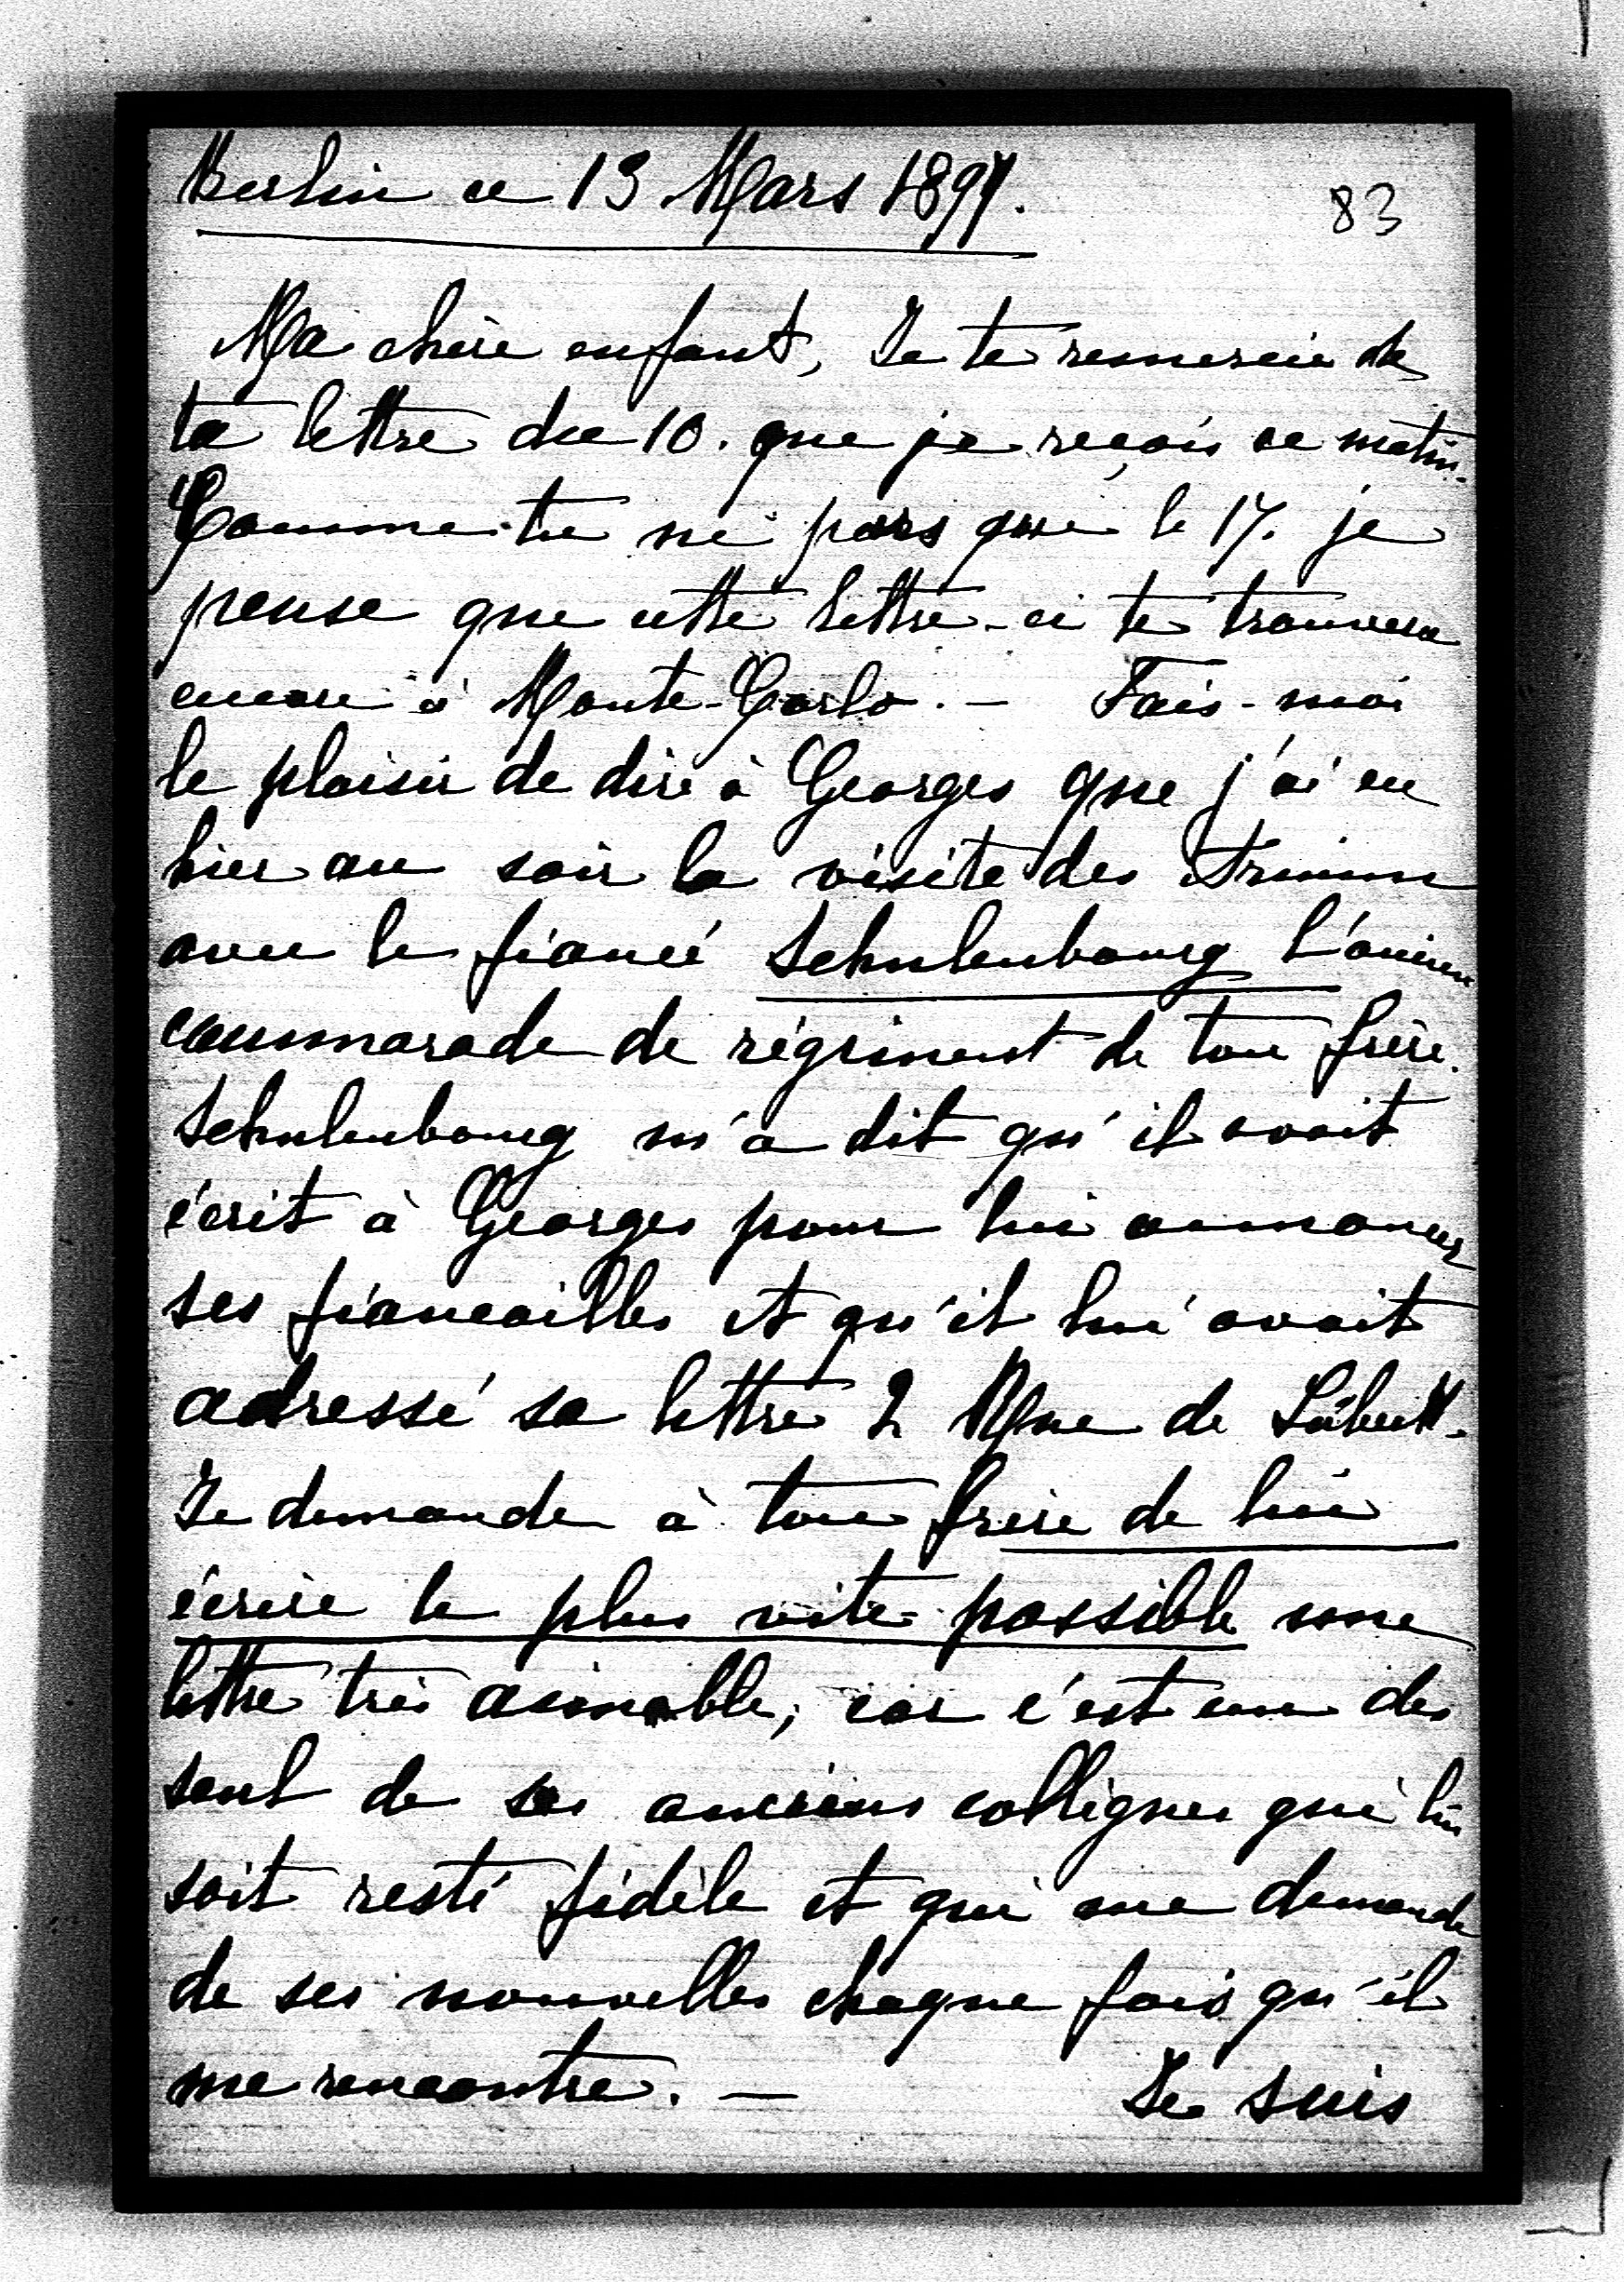 Berlin ce 13 Mars 1897.
83
Ma chère enfant, Je te remercie de
ta lettre du 10. que je reçois ce matin.
Comme tu ne pars que le 17. je
pense que cette lettre-ci te trouvera
encore à Monte-Carlo. — Fais-moi
le plaisir de dire à Georges que j'ai eu
hier au soir la visite des
avec le fiancé Schulenbourg l'ancien
cammarade de régiment de ton frère.
Schulenbourg m'a dit qu'il avait
écrit à Georges pour lui annoncer
ses fiancailles et qu'il lui avait
adressé sa lettre 2 Rue de
Je demande à ton frère de lui
écrire le plus vite possible une
lettre très aimable, car c'est un des
seul de ses anciens collègues qui lui
soit resté fidèle et qui me demande
de ses nouvelles chaque fois qu'il
me rencontre. — Je suis